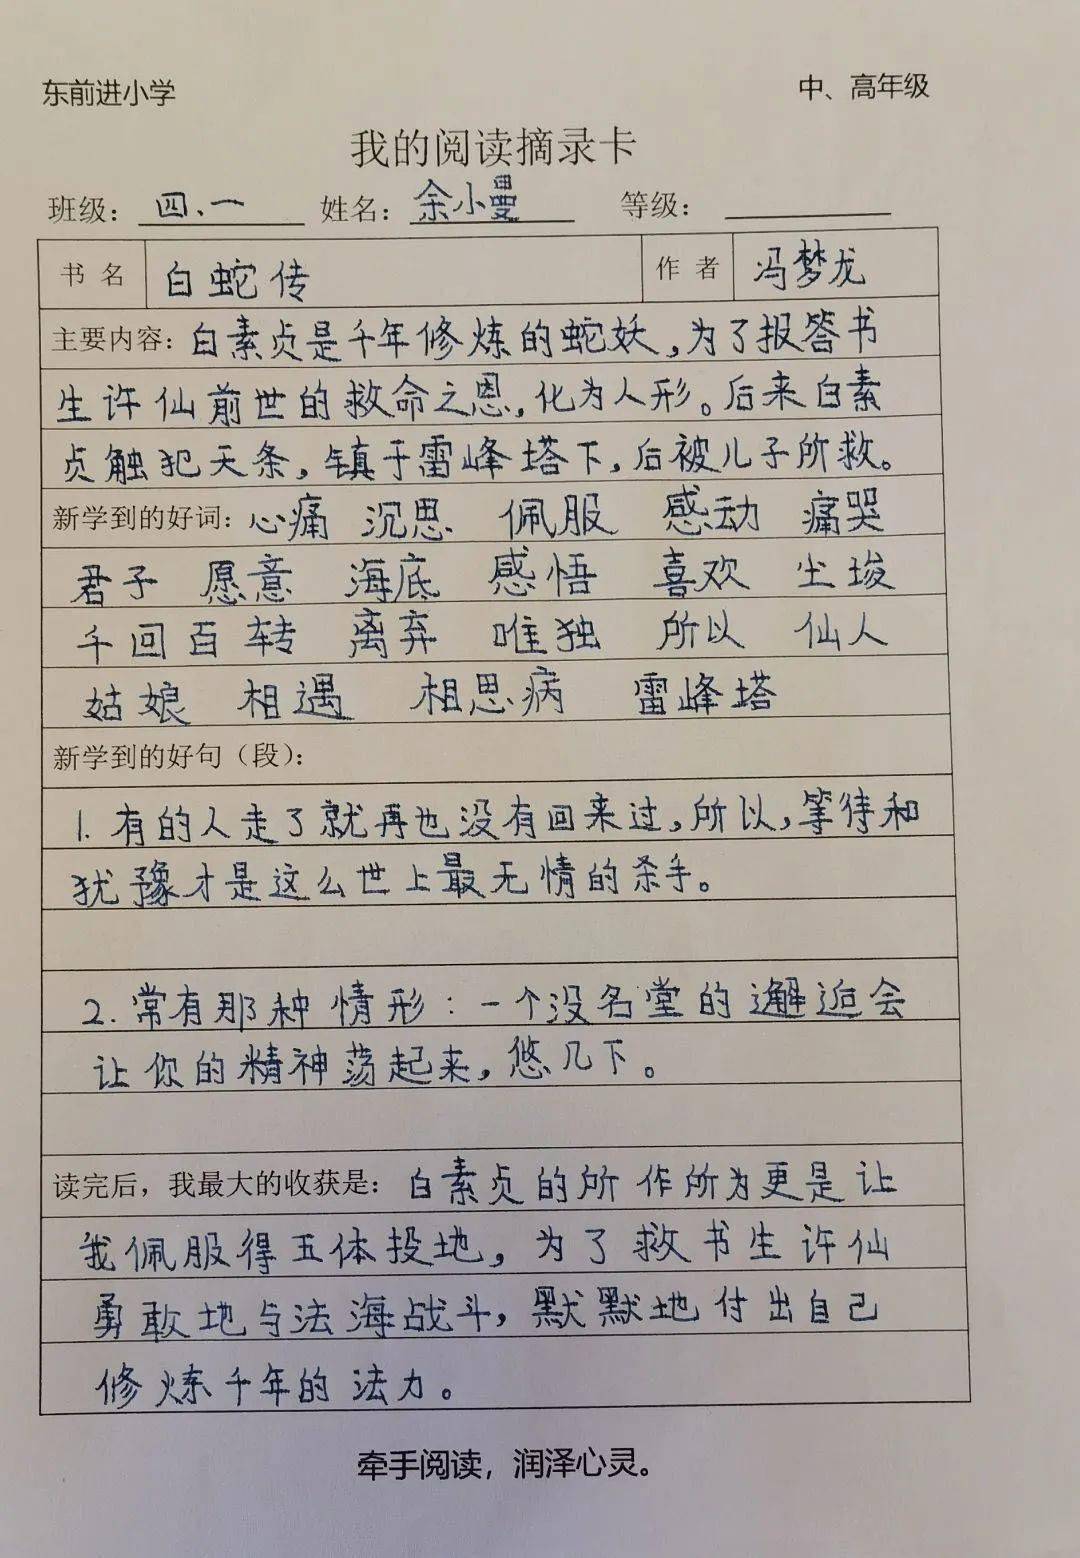 东前进小学 中、高年级
我的阅读摘录卡
班级：四、一 姓名：余小曼 等级：
书名 白蛇传 作者 冯梦龙
主要内容：白素贞是千年修炼的蛇妖，为了报答书
生许仙前世的救命之恩，化为人形。后来白素
贞触犯天条，镇于雷峰塔下，后被儿子所救。
新学到的好词：心痛 沉思 佩服 感动 痛哭
君子 愿意 海底 感悟 喜欢 尘埃
千回百转 离弃 唯独 所以 仙人
姑娘 相遇 相思病 雷峰塔
新学到的好句（段）：
1.有的人走了就再也没有回来过，所以，等待和
犹豫才是这么世上最无情的杀手。
2.常有那种情形：一个没名堂的邂逅会
让你的精神荡起来，悠几下。
读完后，我最大的收获是：白素贞的所作所为更是让
我佩服得五体投地，为了救书生许仙
勇敢地与法海战斗，默默地付出自己
修炼千年的法力。
牵手阅读，润泽心灵。